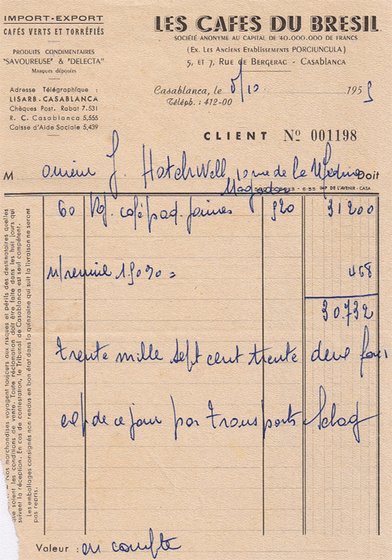 IMPORT-EXPORT
CAFÉS VERTS ET TORRÉFIÉS
PRODUITS CONDIMENTAIRES
"SAVOUREUSE" & "DELECTA"
Marques déposées
Adresse Télégraphique :
LISARB-CASABLANCA
Chèques Post. Rabat 7.531
R. C. Casablanca 5,555
Caisse d'Aide Sociale 5,439
LES CAFES DU BRESIL
SOCIÉTÉ ANONYME AU CAPITAL DE 40.000.000 DE FRANCS
(Ex. Les Anciens Etablissements PORCIUNCULA)
5, et 7, Rue de Bergerac - Casablanca
Casablanca, le 5/10 1955
Téléph. : 412-00
CLIENT Nº 001198
Monsieur J. Hatchwell, 10 rue de la Médina Doit
Mazagan
IMP. DE L'AVENIR - CASA
60 Kg. café pad. 520 31200
n/remise 1,50% = 468
30732
trente mille sept cent trente deux
exp de ce jour par Transports
Valeur : en compte
Nos marchandises voyagent toujours aux risques et périls des destinataires quelles
que soient les conditions de vente. Toute réclamation doit être faite dans les huit jours qui
suivent la réception. En cas de contestation, le Tribunal de Casablanca est seul compétent.
Les emballages consignés non rendus en bon état dans la quinzaine qui suit la livraison ne seront
pas repris.